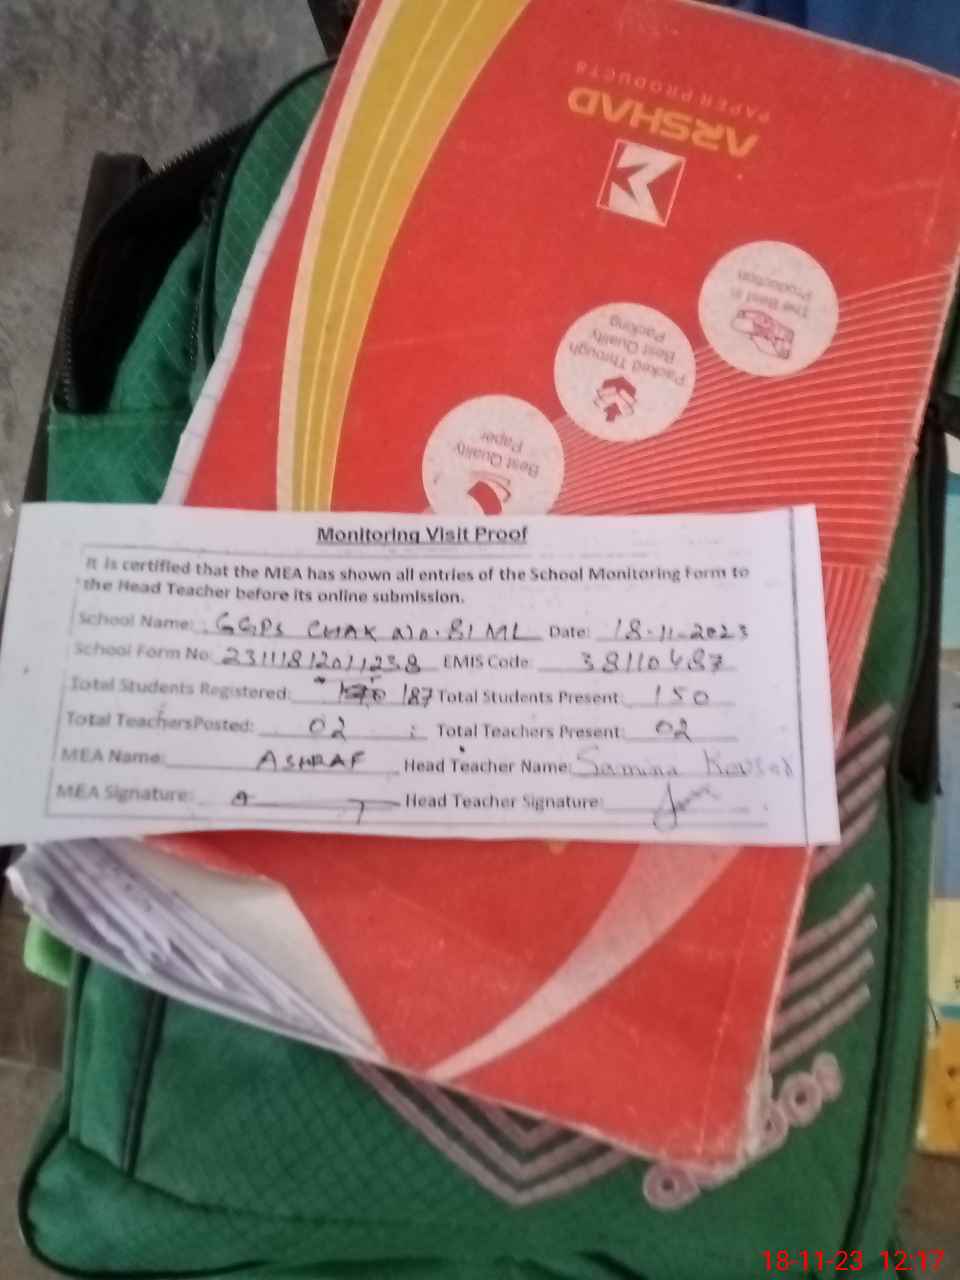 ARSHAD
PAPER PRODUCTS
The Best in
Production
Packed Through
Best Quality
Packing
Best Quality
Paper
Monitoring Visit Proof
It is certified that the MEA has shown all entries of the School Monitoring Form to
the Head Teacher before its online submission.
School Name: GGPS CHAK No. 81 ML Date: 18-11-2023
School Form No: EMIS Code: 38110487
Total Students Registered: 187 Total Students Present: 150
Total TeachersPosted: 02 Total Teachers Present: 02
MEA Name: ASHRAF Head Teacher Name: Samina Kousar
MEA Signature: Head Teacher Signature:
18-11-23 12:17